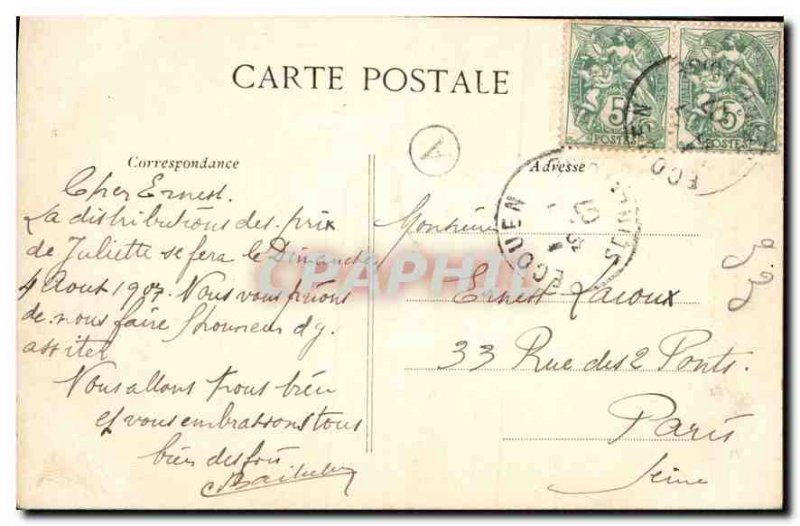 CARTE POSTALE
5
POSTES
5
POSTES
A
Correspondance
Adresse
ECOUEN
ECOUEN
Cher Ernest.
La distributions des prix
de Juliette se fera le Dimanche
4 Aout 1907. Nous vous prions
de nous faire l'honneur d y
assiter
Nous allons tous bien
et vous embrassons tous
bien des fois
Monsieur
Ernest Lacoux
33 Rue des 2 Ponts.
Paris
Seine
CPAPHIL